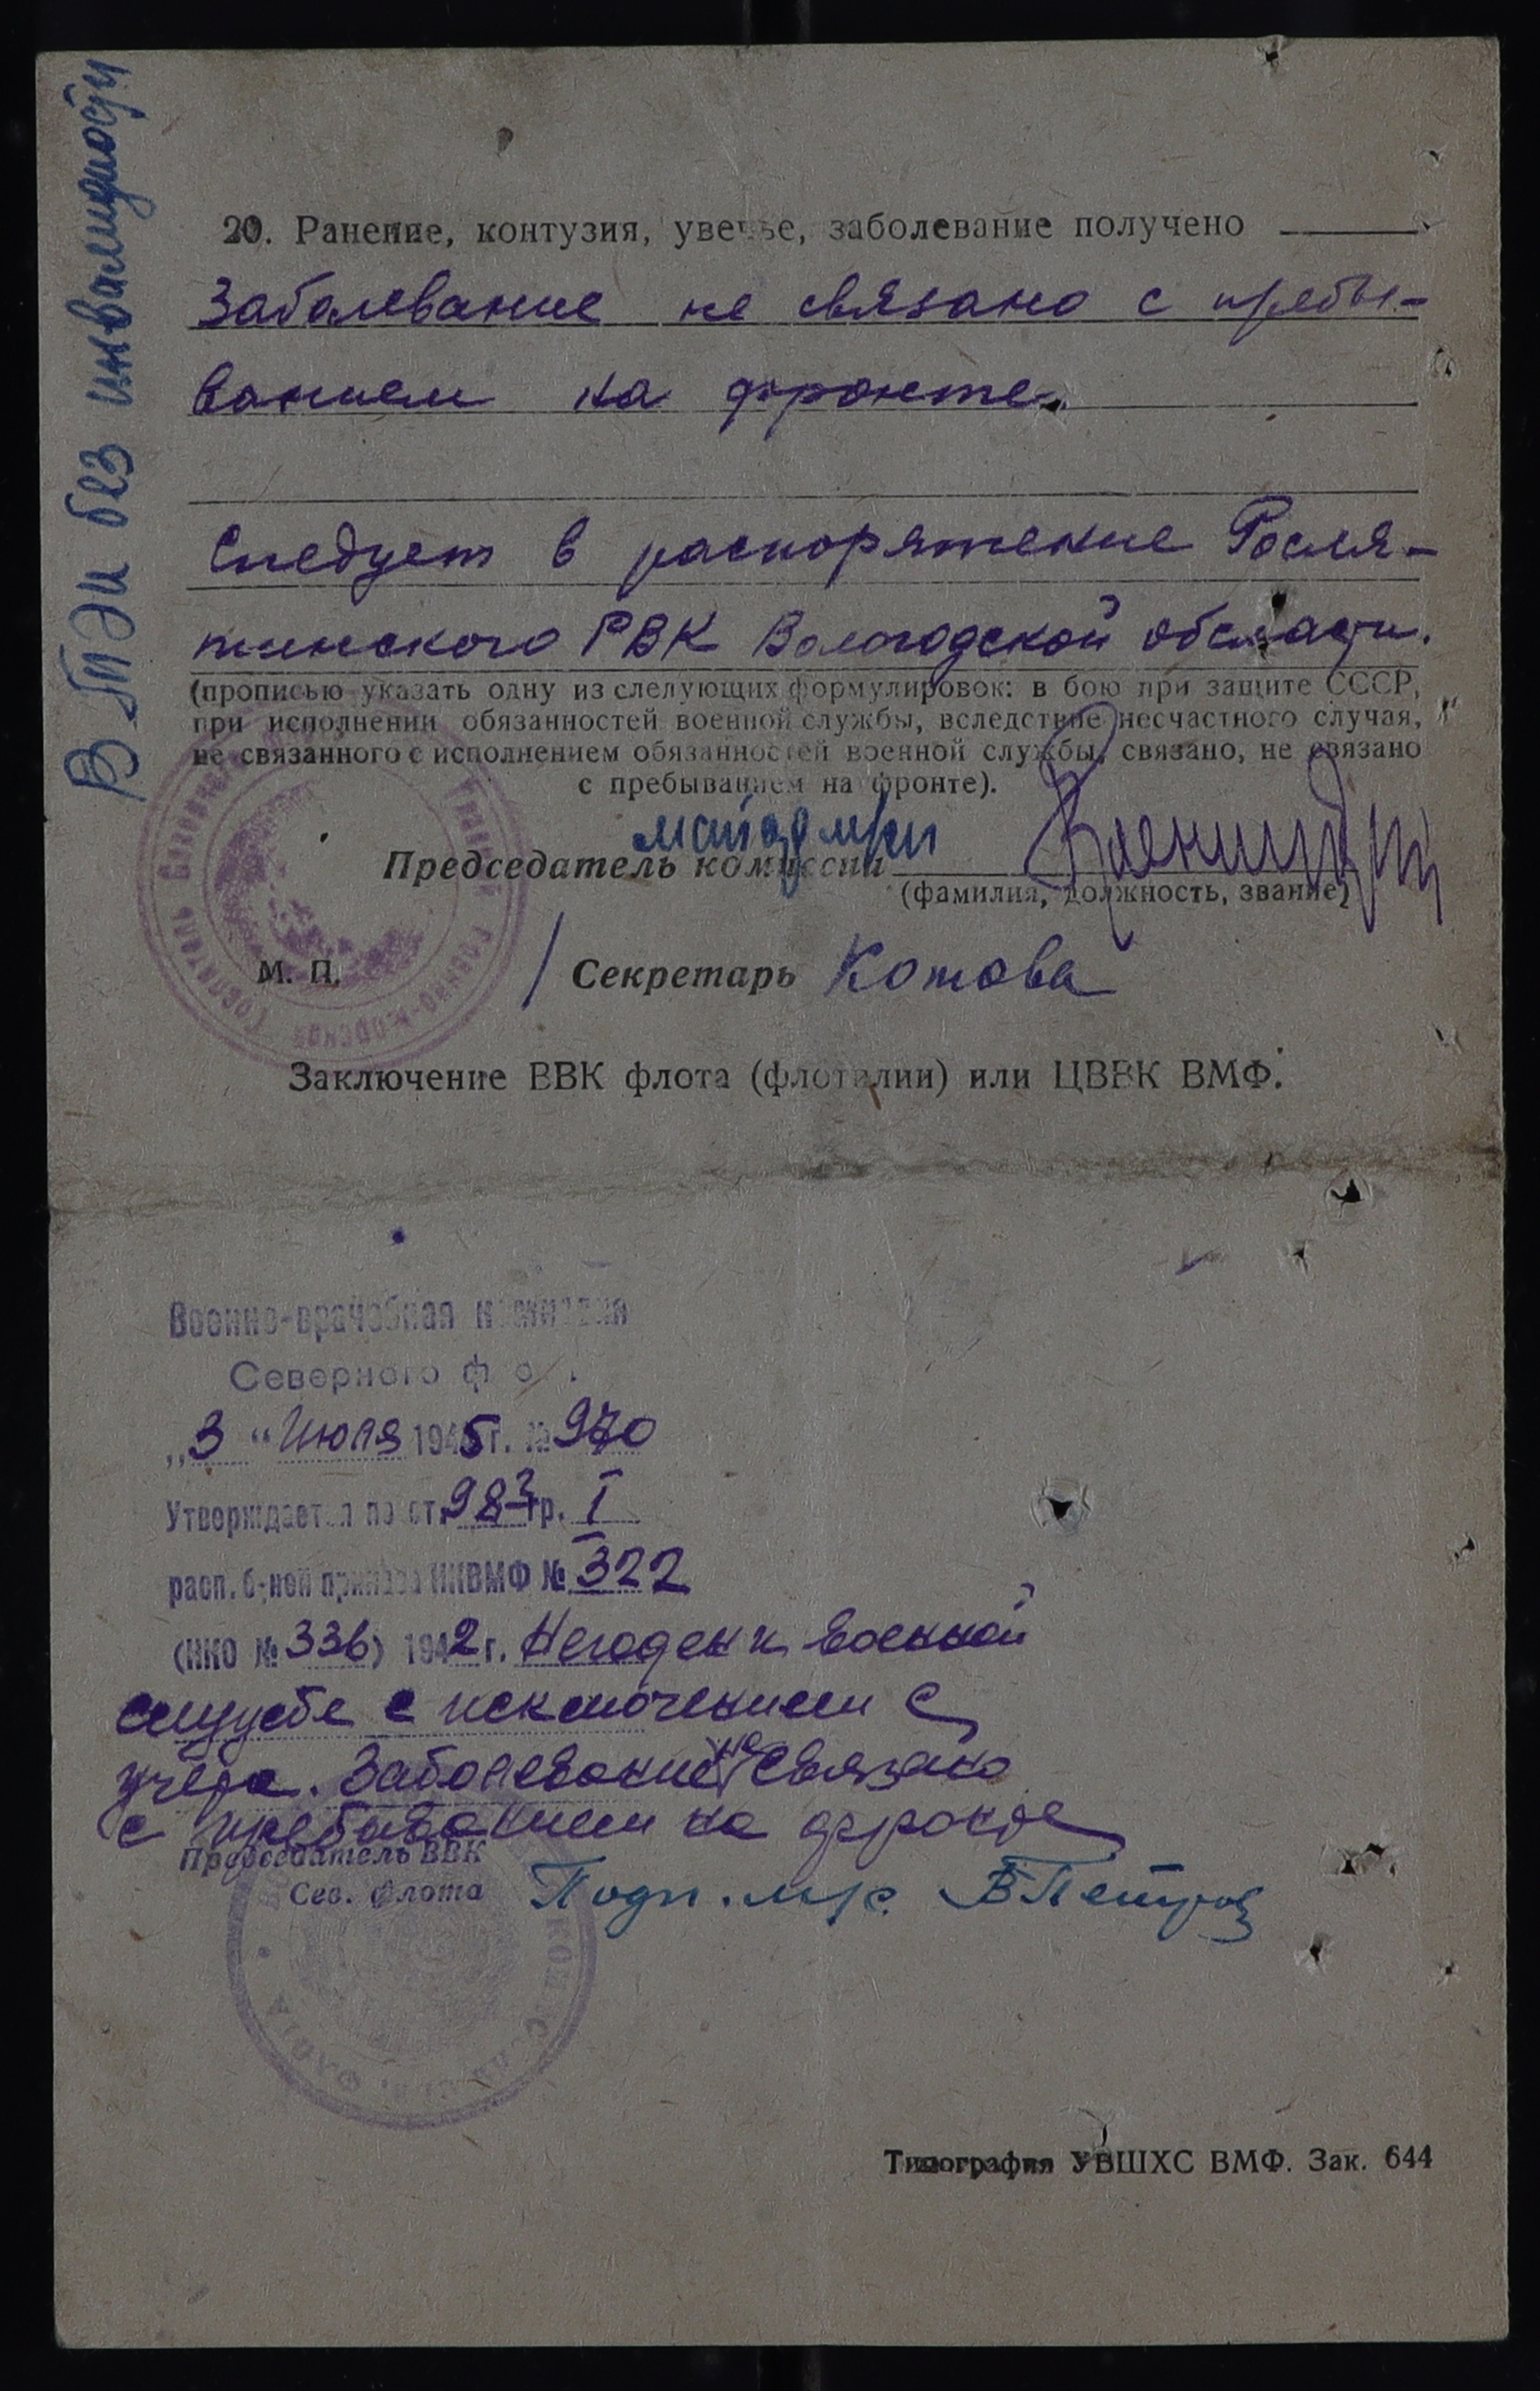 ВТЭИ без инвалидности
20. Ранение, контузия, увечье, заболевание получено
Заболевание не связано с пребы-
ванием на фронте.
Следует в распоряжение Росля-
тинского РВК Вологодской области.
(прописью указать одну из следующих формулировок: в бою при защите СССР,
при исполнении обязанностей военной службы, вследствие несчастного случая,
не связанного с исполнением обязанностей военной службы, связано, не связано
с пребыванием на фронте).
майор м/сл
Председатель комиссии
(фамилия, должность, звание)
М. П.
Секретарь Котова
Заключение ВВК флота (флотилии) или ЦВВК ВМФ.
Военно-врачебная комиссия
Северного флота
„3“ Июля 1945 г. № 970
Утверждается по ст. 98 гр. I
расп. б-ной приказа НКВМФ № 322
(НКО № 336) 1942 г. Негоден к военной
службе с исключением с
учёта. Заболевание не связано
с пребыванием на фронте
Председатель ВВК
Сев. флота Подп. м/с. ВПетров
Типография УВШХС ВМФ. Зак. 644